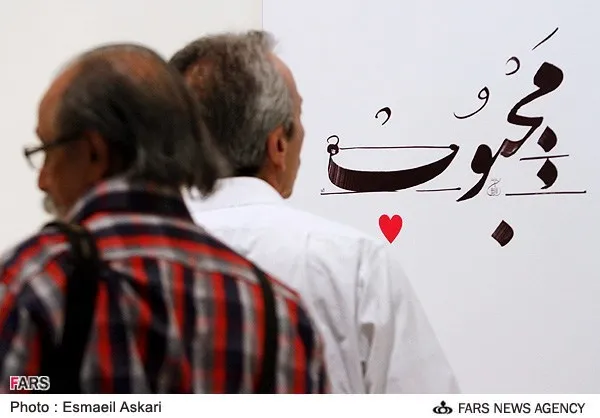 محبوب
FARS
Photo : Esmaeil Askari
FARS NEWS AGENCY